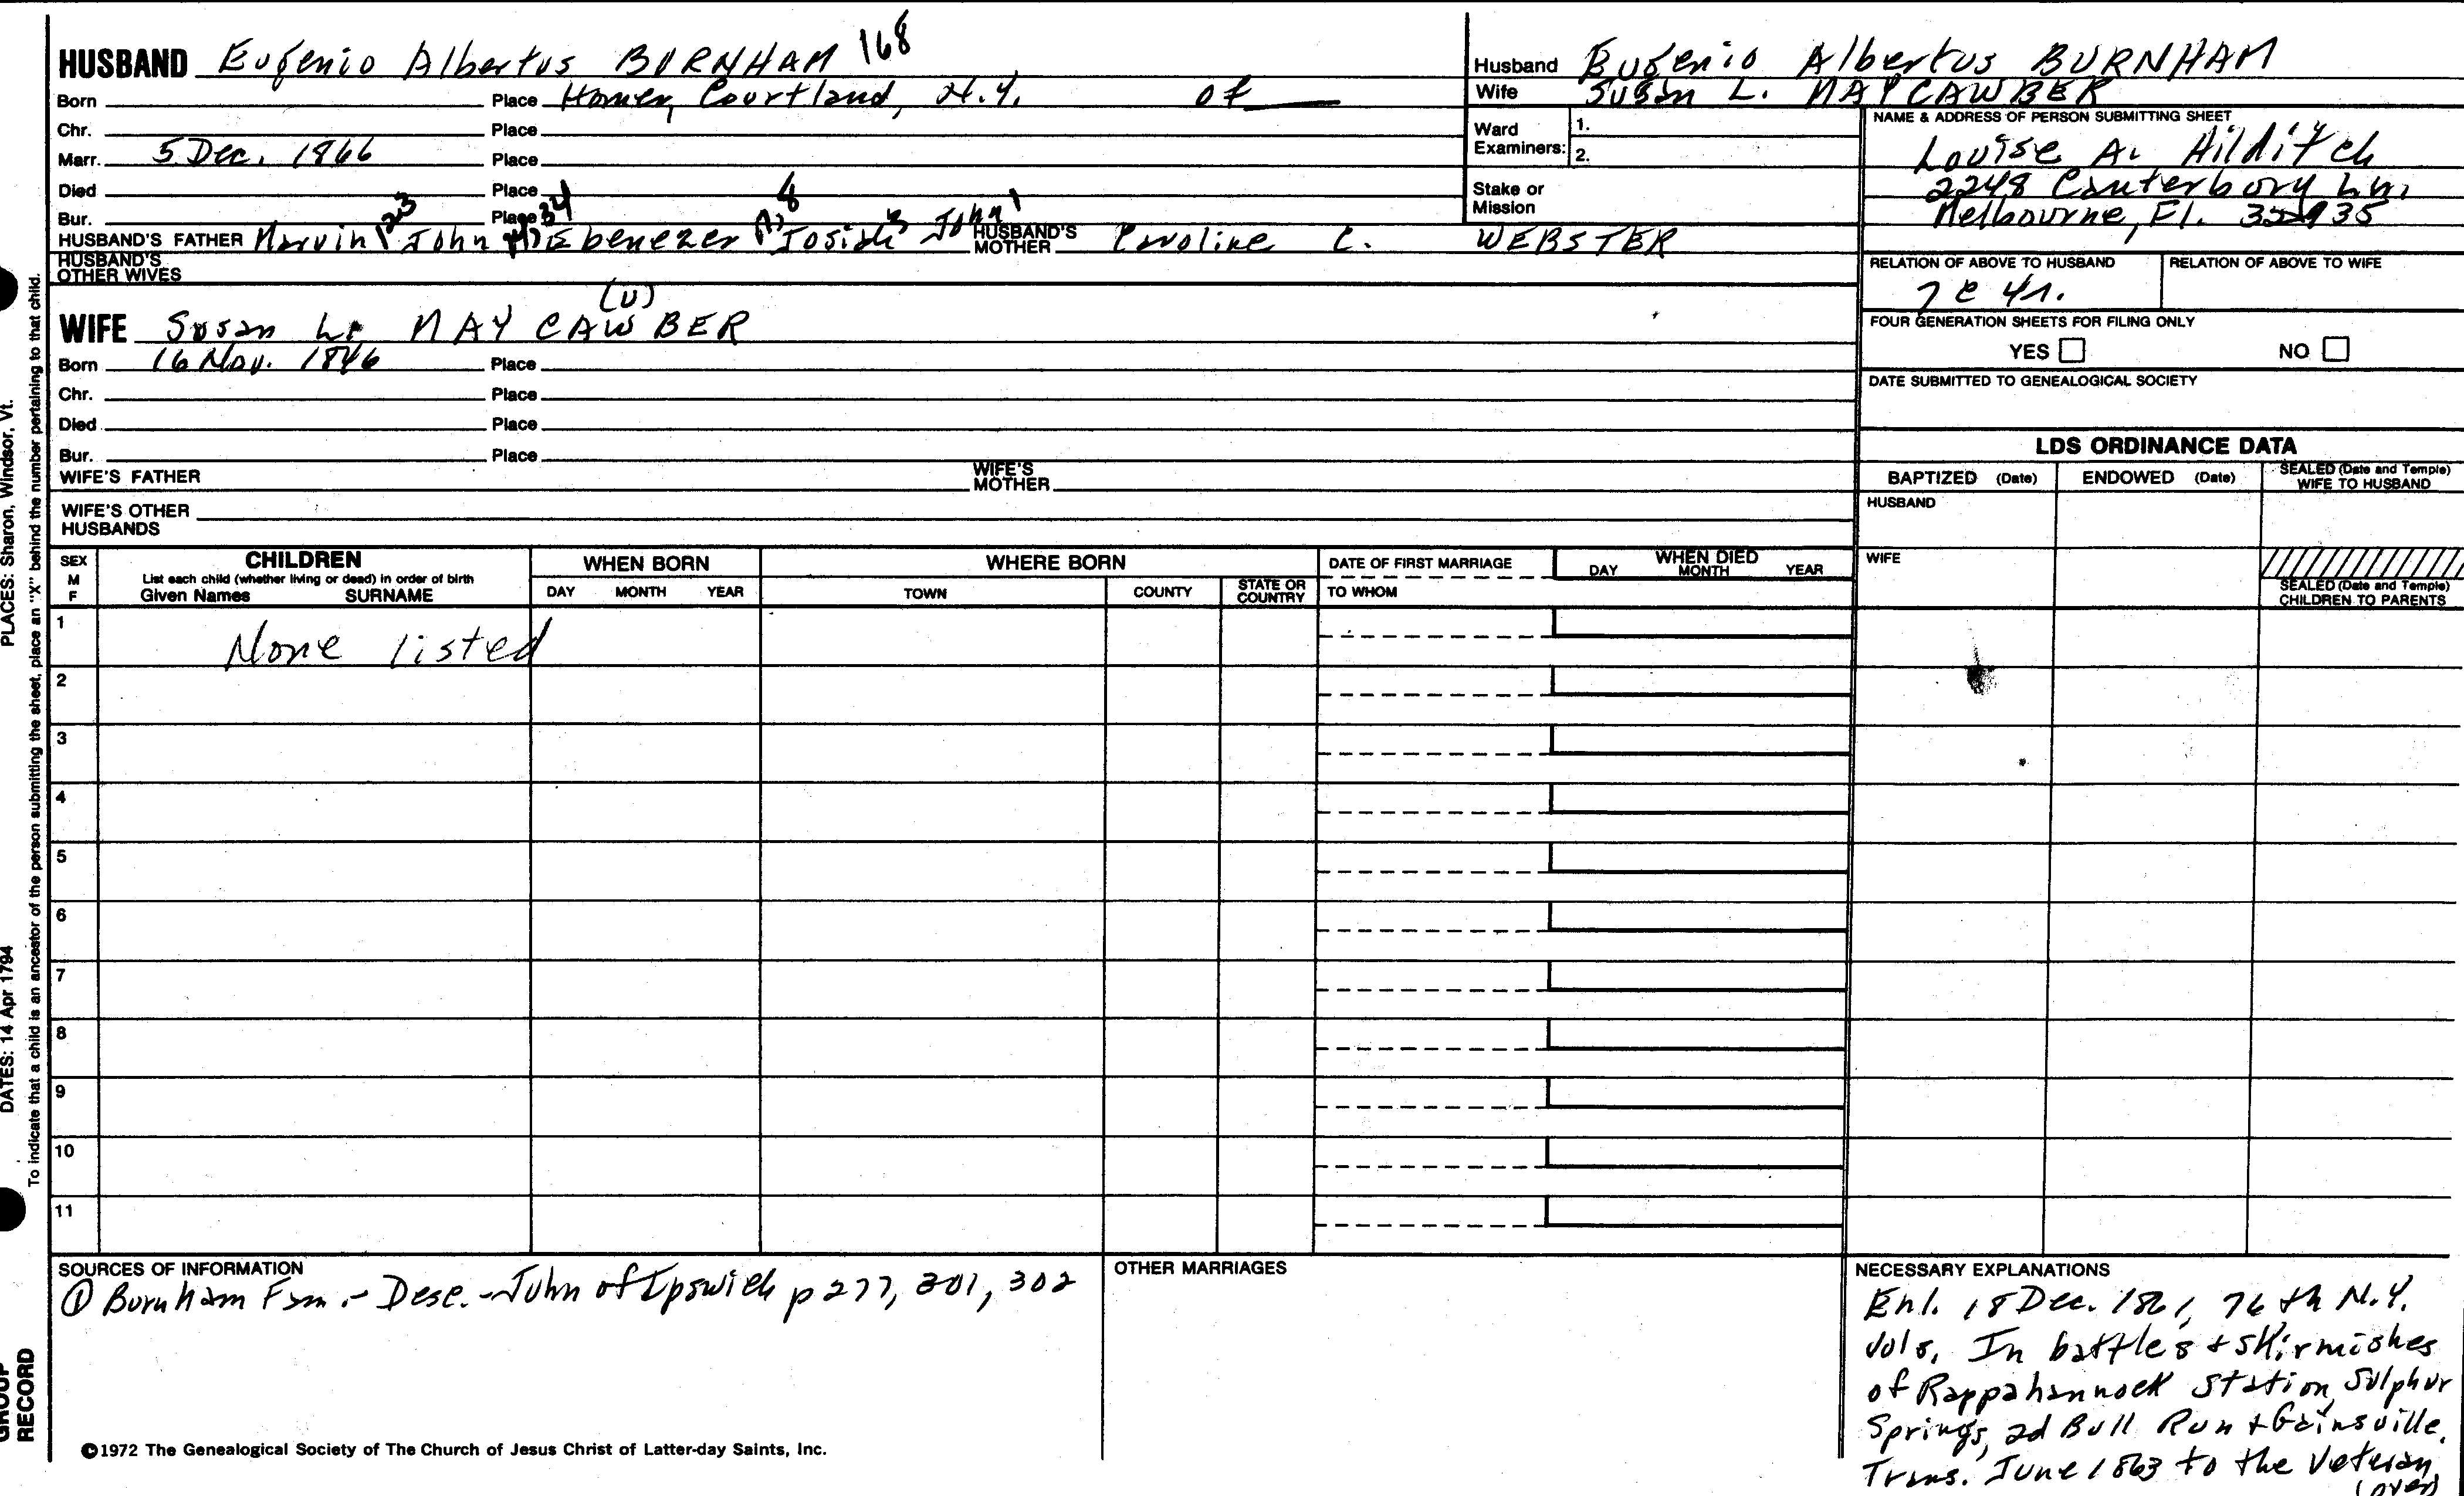 HUSBAND Eugenio Albertus BURNHAM 168
Born Place Homer, Courtland, N.Y. of
Chr. Place
Marr. 5 Dec. 1866 Place
Died Place
Bur. Place
HUSBAND'S FATHER Marvin John Ebenezer Josiah John HUSBAND'S MOTHER Caroline C. WEBSTER
HUSBAND'S OTHER WIVES
(U)
WIFE Susan L. MAY CAWBER
Born 16 Nov. 1846 Place
Chr. Place
Died Place
Bur. Place
WIFE'S FATHER WIFE'S MOTHER
WIFE'S OTHER HUSBANDS
Husband Eugenio Albertus BURNHAM
Wife Susan L. MAYCAWBER
Ward Examiners: 1.
2.
Stake or Mission
NAME & ADDRESS OF PERSON SUBMITTING SHEET
Louise A. Hilditch
2248 Canterbury Ln.
Melbourne, Fl. 32935
RELATION OF ABOVE TO HUSBAND RELATION OF ABOVE TO WIFE
7 C 4r.
FOUR GENERATION SHEETS FOR FILING ONLY
YES NO
DATE SUBMITTED TO GENEALOGICAL SOCIETY
LDS ORDINANCE DATA
BAPTIZED (Date) ENDOWED (Date) SEALED (Date and Temple) WIFE TO HUSBAND
HUSBAND
WIFE
SEALED (Date and Temple) CHILDREN TO PARENTS
SEX M F
CHILDREN
List each child (whether living or dead) in order of birth
Given Names SURNAME
WHEN BORN
DAY MONTH YEAR
WHERE BORN
TOWN COUNTY STATE OR COUNTRY
DATE OF FIRST MARRIAGE
TO WHOM
WHEN DIED
DAY MONTH YEAR
1 None listed
2
3
4
5
6
7
8
9
10
11
SOURCES OF INFORMATION
① Burnham Fam.- Desc.-John of Ipswich p 277, 301, 302
©1972 The Genealogical Society of The Church of Jesus Christ of Latter-day Saints, Inc.
OTHER MARRIAGES
NECESSARY EXPLANATIONS
Enl. 18 Dec. 1861, 76th N.Y.
Vols. In battles + skirmishes
of Rappahannock Station, Sulphur
Springs, 2d Bull Run + Gainsville.
Trans. June 1863 to the Veteran
(over)
PLACES: Sharon, Windsor, Vt.
DATES: 14 Apr 1794
To indicate that a child is an ancestor of the person submitting the sheet, place an "X" behind the number pertaining to that child.
GROUP
RECORD